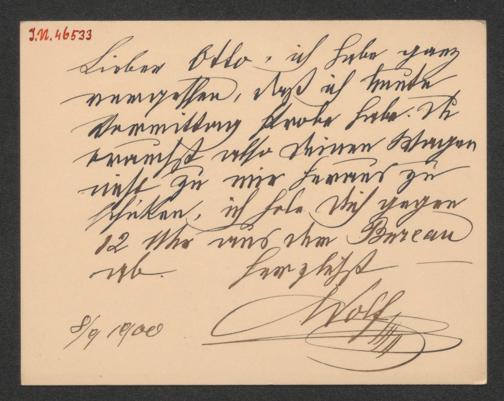 J.N. 46533
Lieber Otto, ich habe ganz
vergessen, daß ich heute
Vormittag Probe habe. Du
brauchst also Deinen Wagen
nicht zu mir heraus zu
schicken, ich hole Dich gegen
12 Uhr aus dem Bureau
ab. Herzlichst —
Wolf
8/9 1900